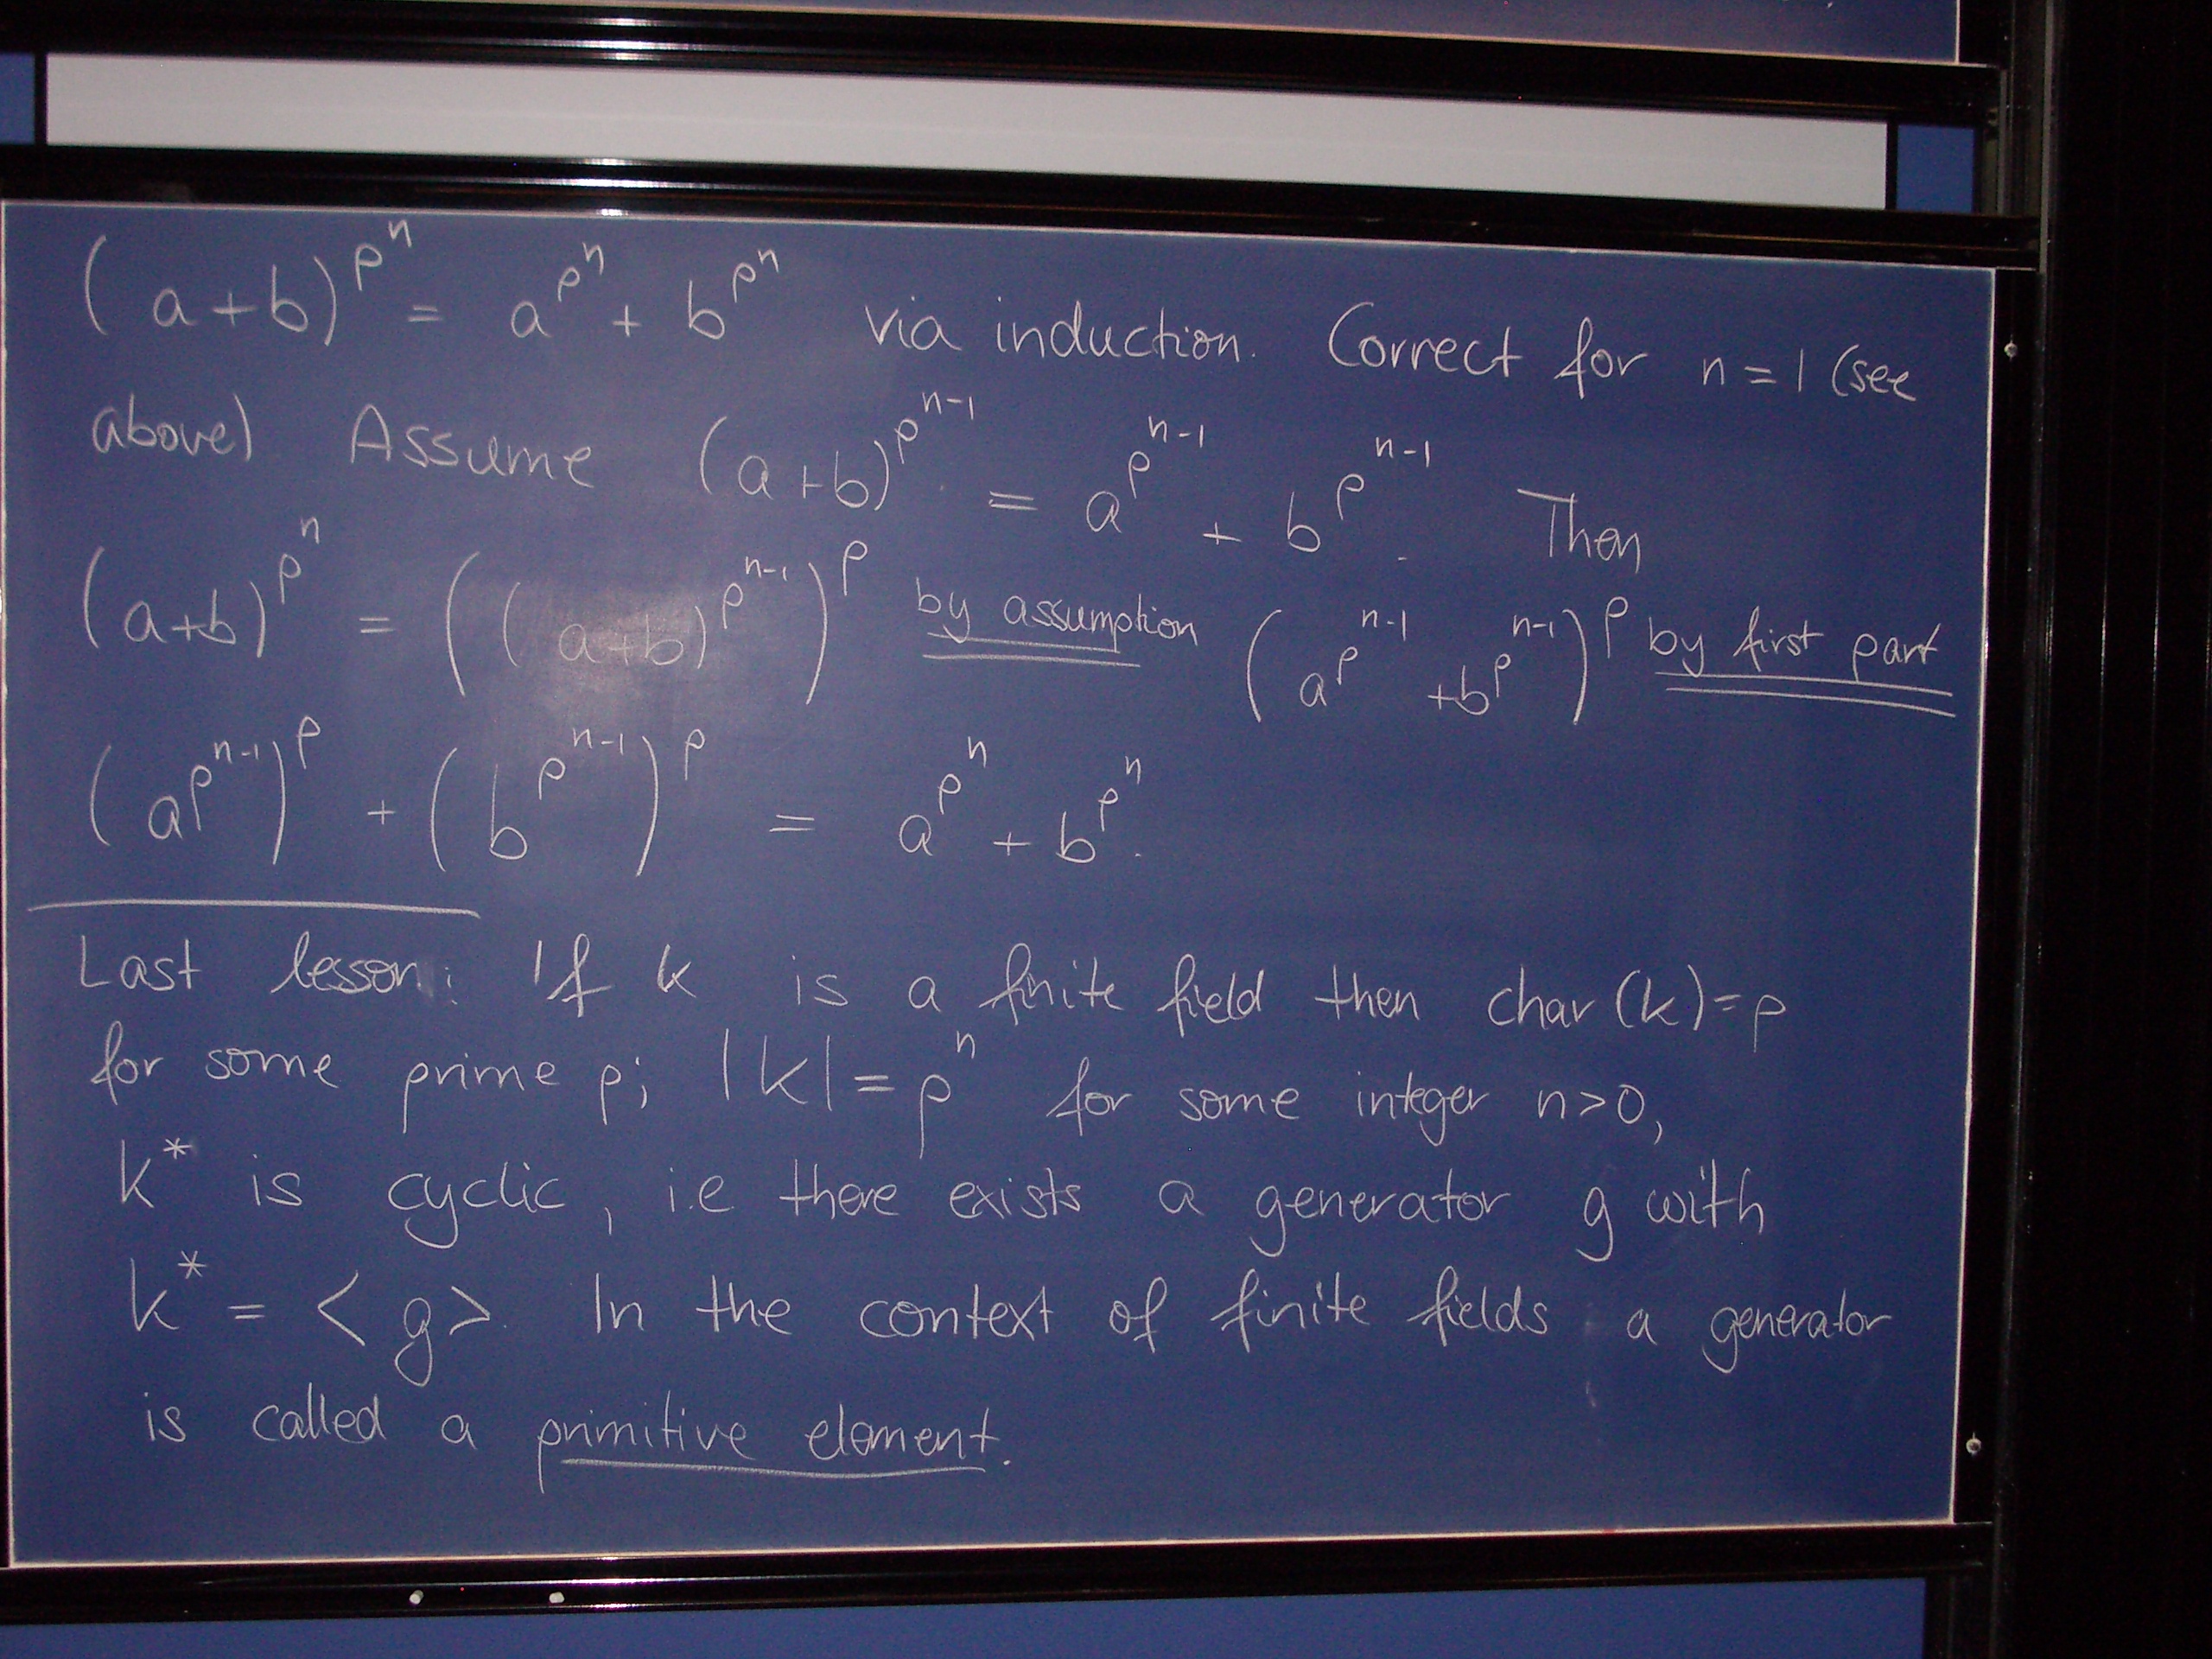 (a+b)^{p^n} = a^{p^n} + b^{p^n} via induction. Correct for n=1 (see
above) Assume (a+b)^{p^{n-1}} = a^{p^{n-1}} + b^{p^{n-1}}. Then
(a+b)^{p^n} = ((a+b)^{p^{n-1}})^p by assumption (a^{p^{n-1}} +b^{p^{n-1}})^p by first part
(a^{p^{n-1}})^p + (b^{p^{n-1}})^p = a^{p^n} + b^{p^n}.
Last lesson: If k is a finite field then char(k)=p
for some prime p; |k|=p^n for some integer n>0,
k* is cyclic, i.e there exists a generator g with
k* = <g>. In the context of finite fields a generator
is called a primitive element.